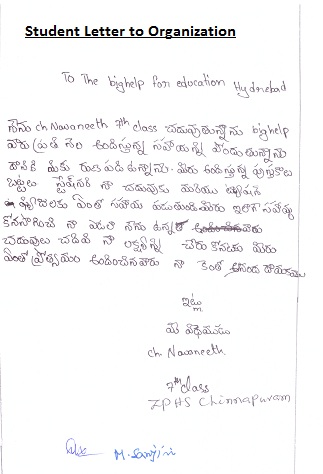 Student Letter to Organization
To The bighelp for education Hyderabad
నేను ch Navaneeth 7th class చదువుతున్నాను bighelp
వారు ప్రతి నెల అందిస్తున్న సహాయాన్ని పొందుతున్నాను
దానికి మీకు రుణపడి ఉన్నాను. మీరు అందిస్తున్న పుస్తకాలు
బట్టలు స్టేషనరీ నా చదువుకు మరియు
ఎంతో సహాయ పడుతుంది మీరు ఇలాగే సహాయం
కొనసాగించి నా ఎడల నేను ఉన్నత
చదువులు చదివి నా లక్ష్యాన్ని చేరుకొనుటకు మీరు
ఎంతో ప్రోత్సాహం అందించినవారు నా కెంతో ఆనంద దాయకము
ఇట్లు
మీ విధేయుడు
ch. Navaneeth
7th class
ZPHS Chinnapuram
M. Sanjiv